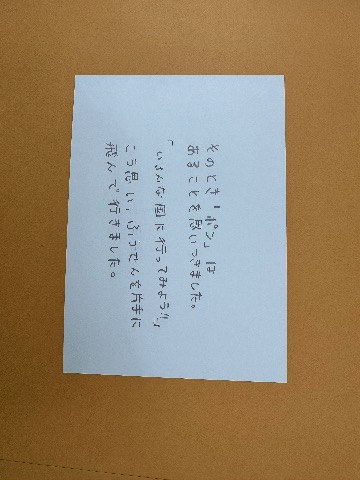 そのとき「ポン」は
あることを思いつきました。
「いろんな国に行ってみよう!!」
こう思い、ふうせんを片手に
飛んで行きました。